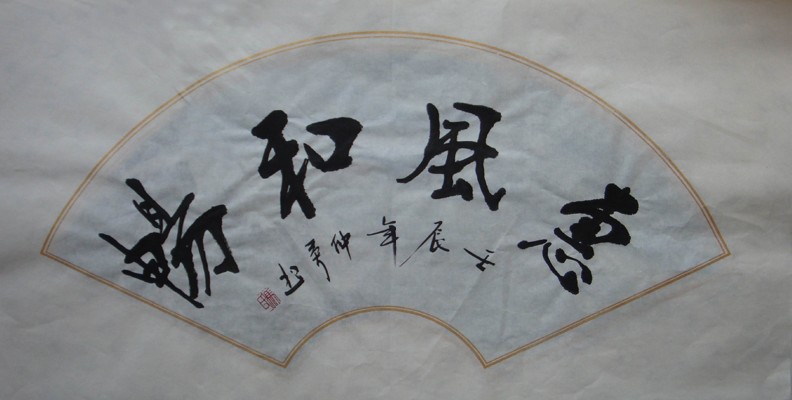 惠風和暢
壬辰年仲夏